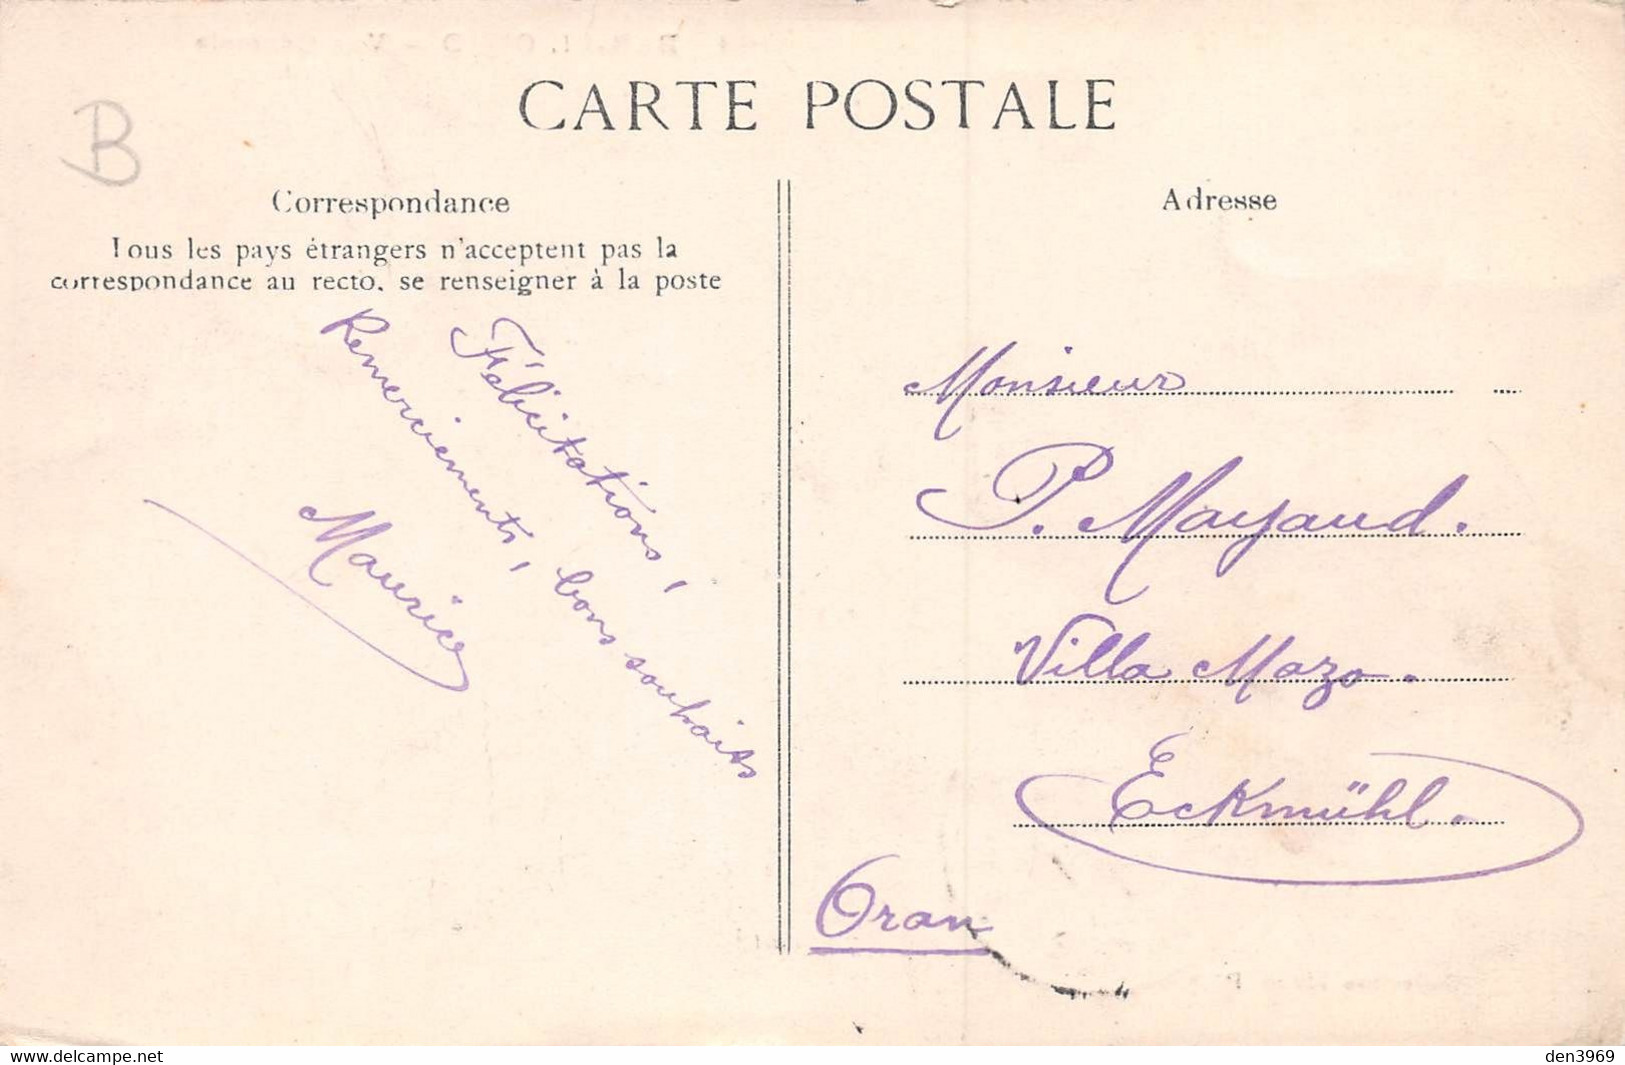 CARTE POSTALE
B
Correspondance
Tous les pays étrangers n'acceptent pas la
correspondance au recto. se renseigner à la poste
Félicitations,
Remerciements, bons souhaits
Maurice
Adresse
Monsieur
P. Mayaud.
Villa Mazo.
Eckmühl.
Oran
www.delcampe.net
den3969